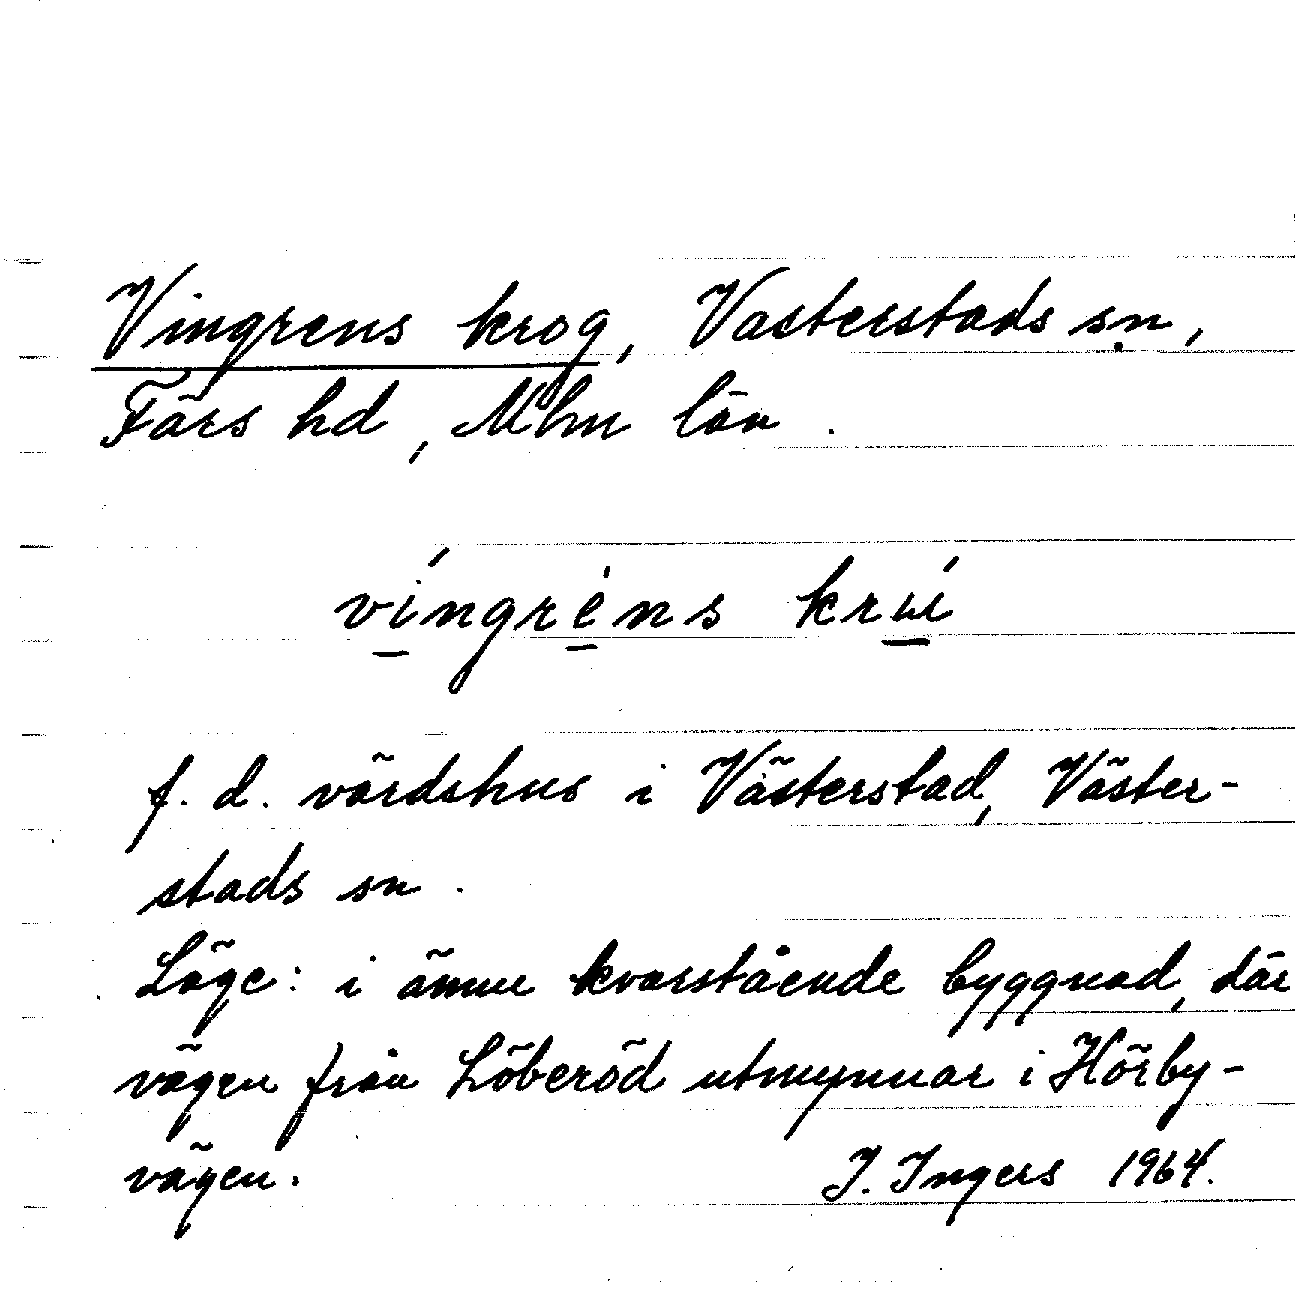 Vingrens krog, Vasterstads sn,
Färs hd, Mlm län.
víngrėns krúí
f. d. värdshus i Västerstad, Väster-
stads sn.
Läge: i ännu kvarstående byggnad, där
vägen från Löberöd utmynnar i Hörby-
vägen.
I. Ingers 1964.